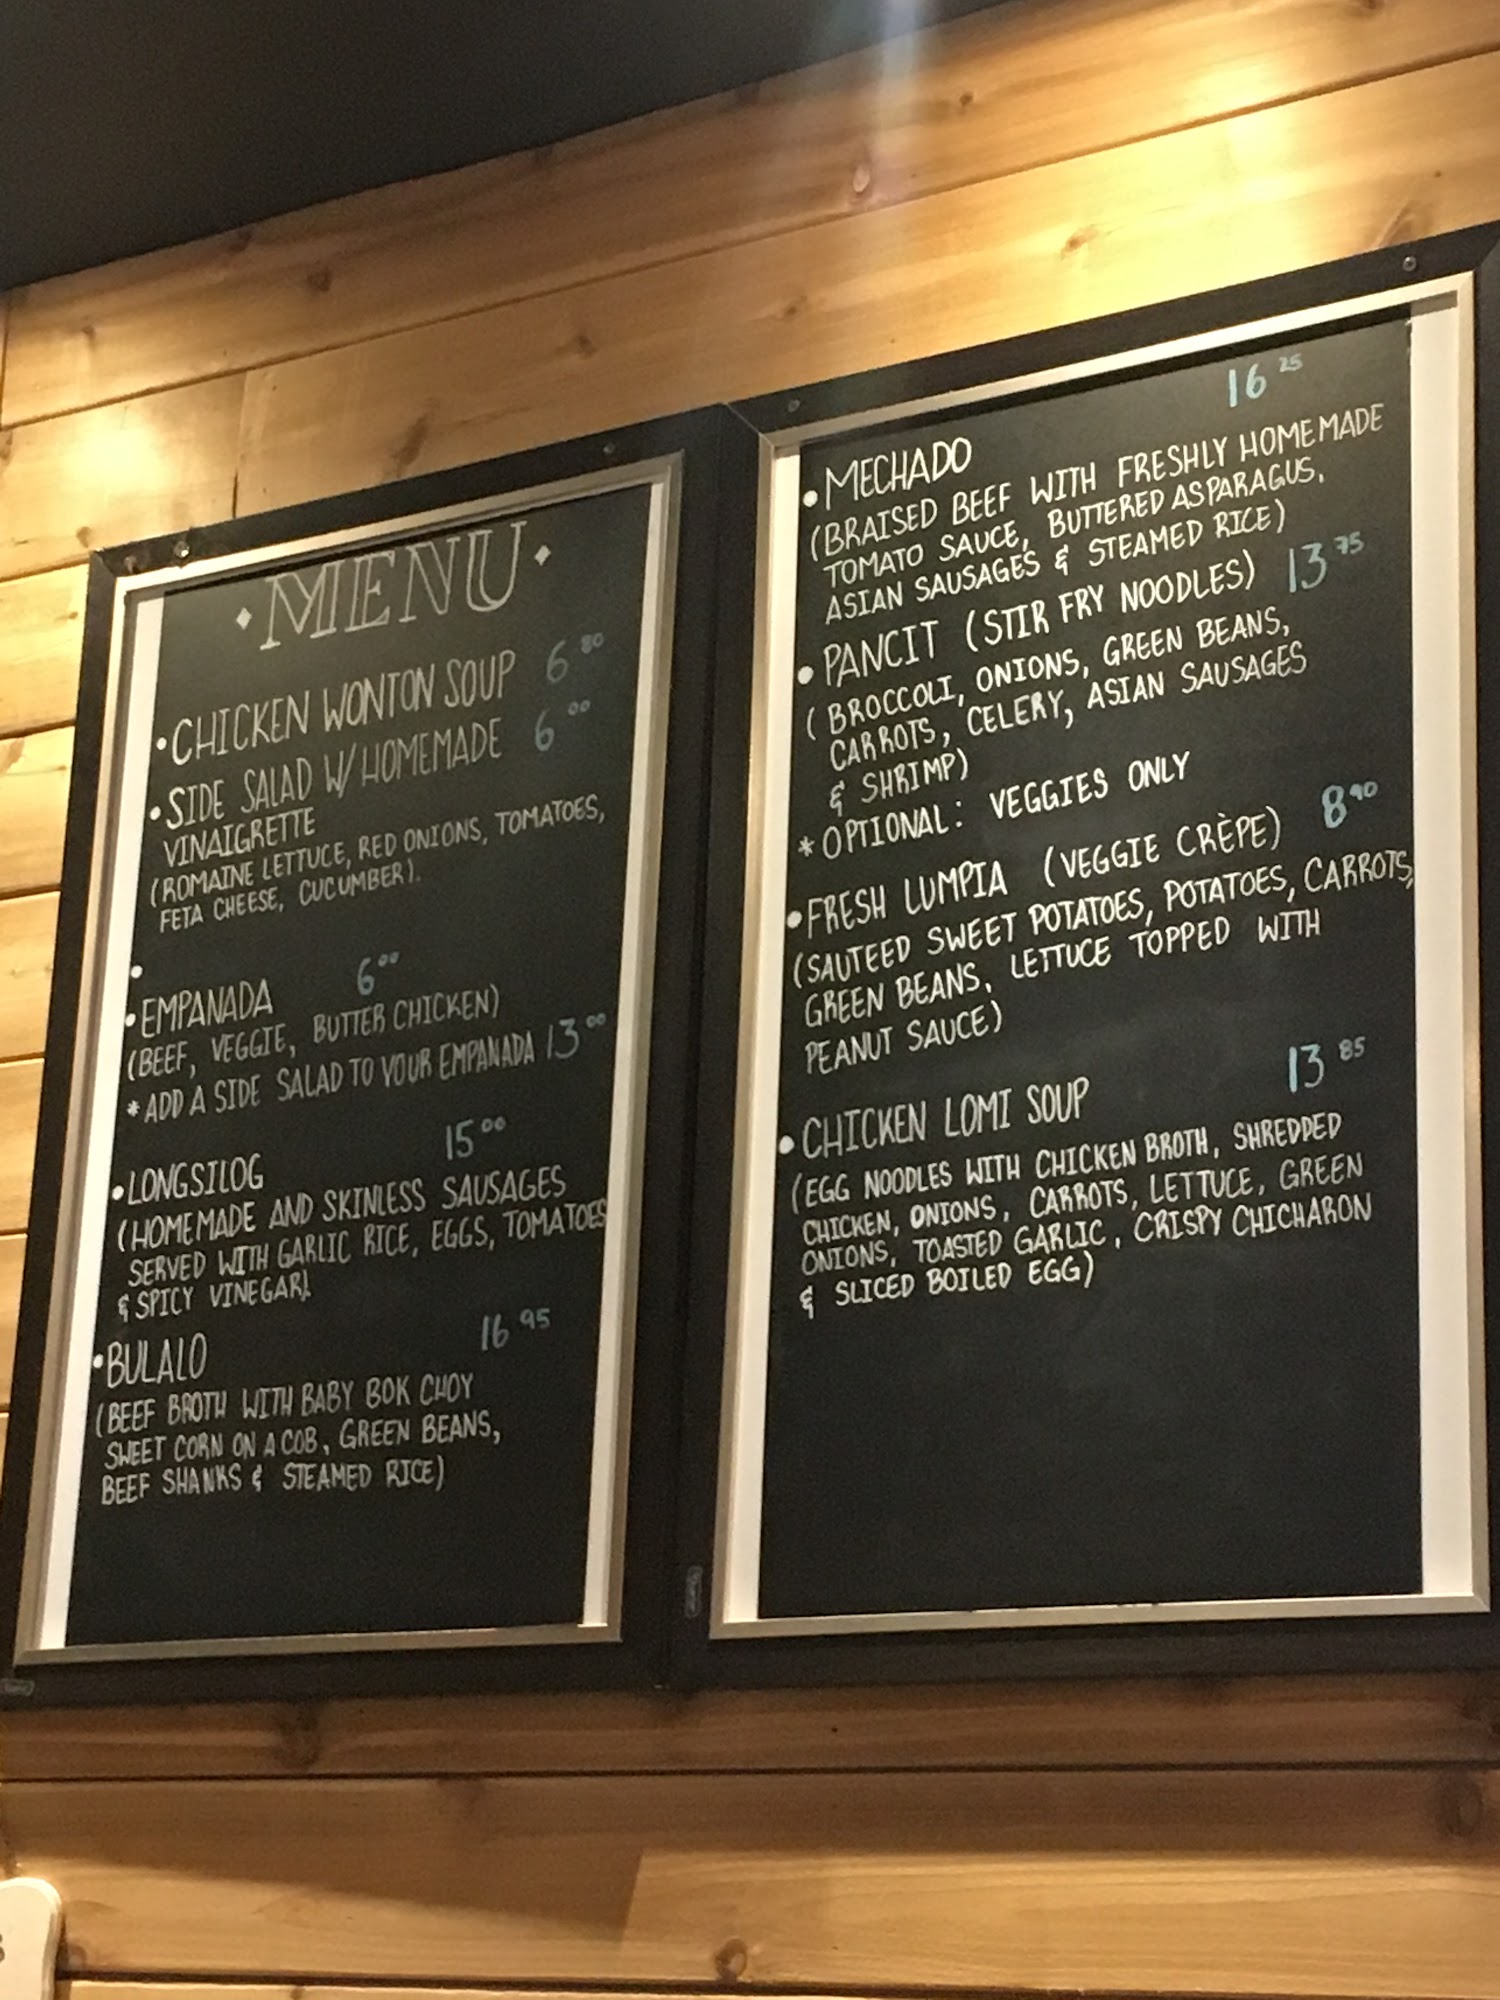 MENU
•CHICKEN WONTON SOUP 6 80
•SIDE SALAD W/HOMEMADE 6 00
VINAIGRETTE
(ROMAINE LETTUCE, RED ONIONS, TOMATOES,
FETA CHEESE, CUCUMBER).
•
•EMPANADA 6 00
(BEEF, VEGGIE, BUTTER CHICKEN)
*ADD A SIDE SALAD TO YOUR EMPANADA 13 00
•LONGSILOG 15 00
(HOMEMADE AND SKINLESS SAUSAGES
SERVED WITH GARLIC RICE, EGGS, TOMATOES
& SPICY VINEGAR)
•BULALO 16 95
(BEEF BROTH WITH BABY BOK CHOY
SWEET CORN ON A COB, GREEN BEANS,
BEEF SHANKS & STEAMED RICE)
•MECHADO 16 25
(BRAISED BEEF WITH FRESHLY HOMEMADE
TOMATO SAUCE, BUTTERED ASPARAGUS,
ASIAN SAUSAGES & STEAMED RICE)
•PANCIT (STIR FRY NOODLES) 13 75
(BROCCOLI, ONIONS, GREEN BEANS,
CARROTS, CELERY, ASIAN SAUSAGES
& SHRIMP)
*OPTIONAL: VEGGIES ONLY
•FRESH LUMPIA (VEGGIE CRÈPE) 8 90
(SAUTEED SWEET POTATOES, POTATOES, CARROTS,
GREEN BEANS, LETTUCE TOPPED WITH
PEANUT SAUCE)
•CHICKEN LOMI SOUP 13 85
(EGG NOODLES WITH CHICKEN BROTH, SHREDDED
CHICKEN, ONIONS, CARROTS, LETTUCE, GREEN
ONIONS, TOASTED GARLIC, CRISPY CHICHARON
& SLICED BOILED EGG)